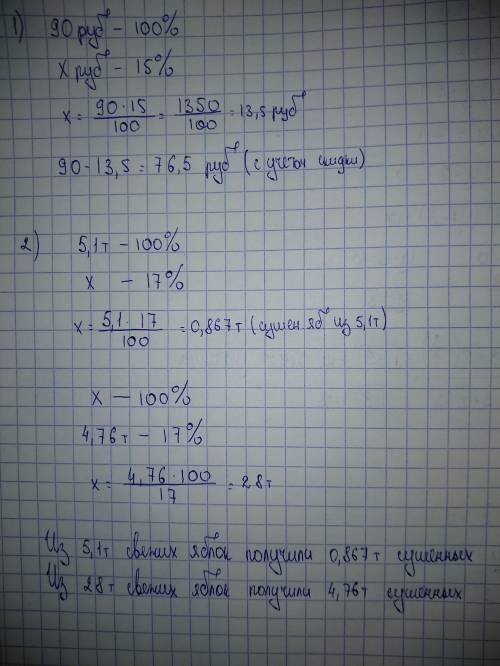 1) 90 руб - 100%
х руб - 15%
х = 90·15/100 = 1350/100 = 13,5 руб
90 - 13,5 = 76,5 руб (с учетом скидки)
2) 5,1т - 100%
х - 17%
х = 5,1·17/100 = 0,867т (сушен. яб из 5,1т)
х - 100%
4,76т - 17%
х = 4,76·100/17 = 28т
Из 5,1т свежих яблок получили 0,867т сушенных
Из 28т свежих яблок получили 4,76т сушенных